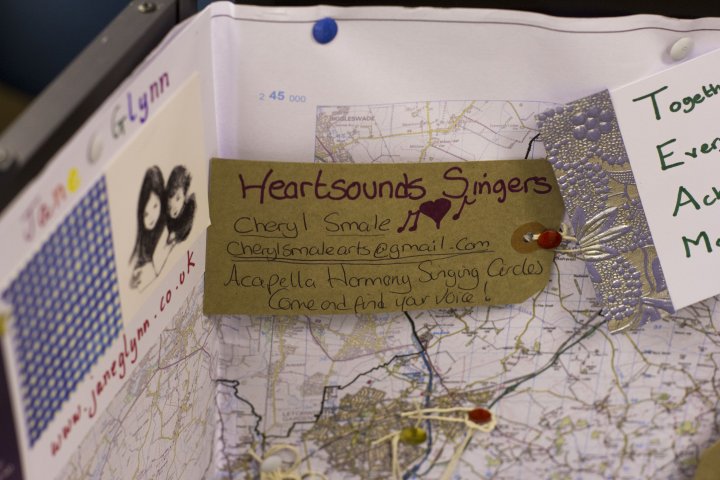 Jane Glynn
www.janeglynn.co.uk
2 45 000
Heartsounds Singers
Cheryl Smale
Cherylsmalearts@gmail.com
Acapella Harmony Singing Circles
Come and find your voice!
Together